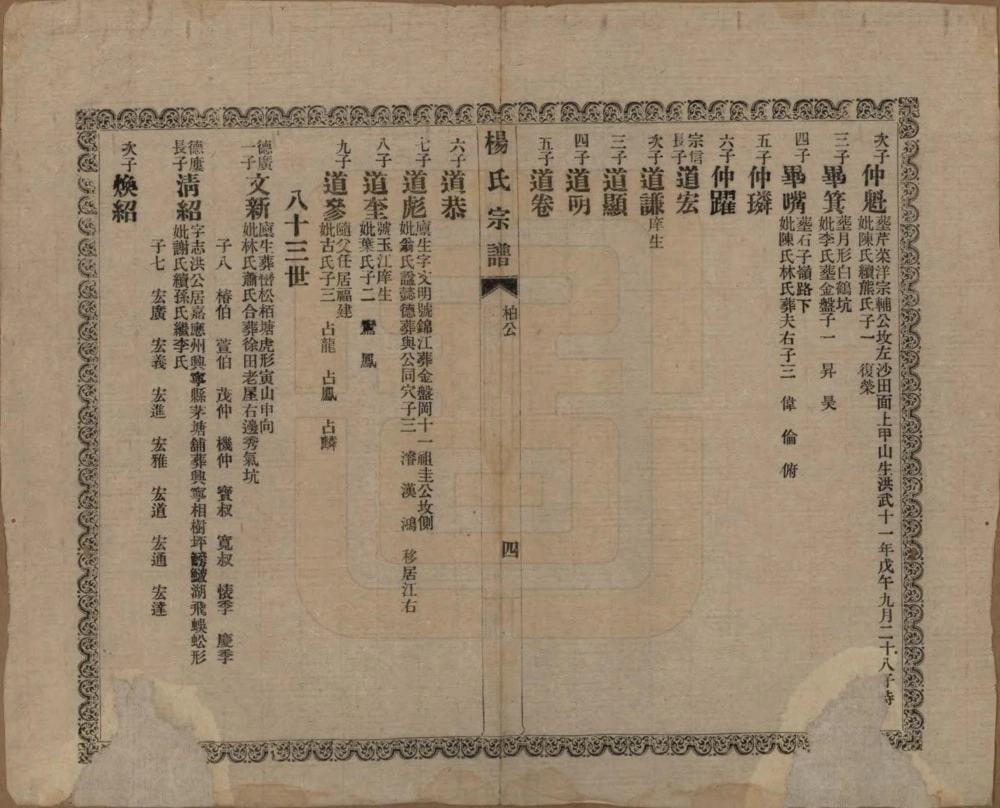 次子 仲魁 塟芹菜洋宗輔公坟左沙田面上甲山生洪武十一年戊午九月二十八子時
妣陳氏續熊氏子一 復榮
三子 畢箕 塟月形白鶴坑
妣李氏塟金盤子一 昇 昊
四子 畢嘴 塟石子嶺路下
妣陳氏林氏葬夫右子三 偉 倫 俯
五子 仲璘
六子 仲躍
宗信長子 道宏
次子 道謙 庠生
三子 道顯
四子 道明
五子 道卷
楊氏宗譜 柏公 四
六子 道恭
七子 道彪 廩生字文明號錦江葬金盤岡十一祖圭公坟側
妣翁氏謚懿德葬與公同穴子三 濬 漢 鴻 移居江右
八子 道奎 號玉江庠生
妣葉氏子二 鸞 鳳
九子 道參 隨父任居福建
妣古氏子三 占龍 占鳳 占麟
八十三世
德廣一子 文新 廩生葬嶆松栢塘虎形寅山申向
妣林氏蕭氏合葬徐田老屋右邊秀氣坑
子八 椿伯 萱伯 茂仲 機仲 寶叔 寬叔 懐季 慶季
德慶長子 淸紹 字志洪公居嘉應州興寧縣茅塘舖葬興寧相樹坪螃蠏湖飛蜈蚣形
妣謝氏續孫氏繼李氏
子七 宏廣 宏義 宏進 宏雅 宏道 宏通 宏達
次子 煥紹